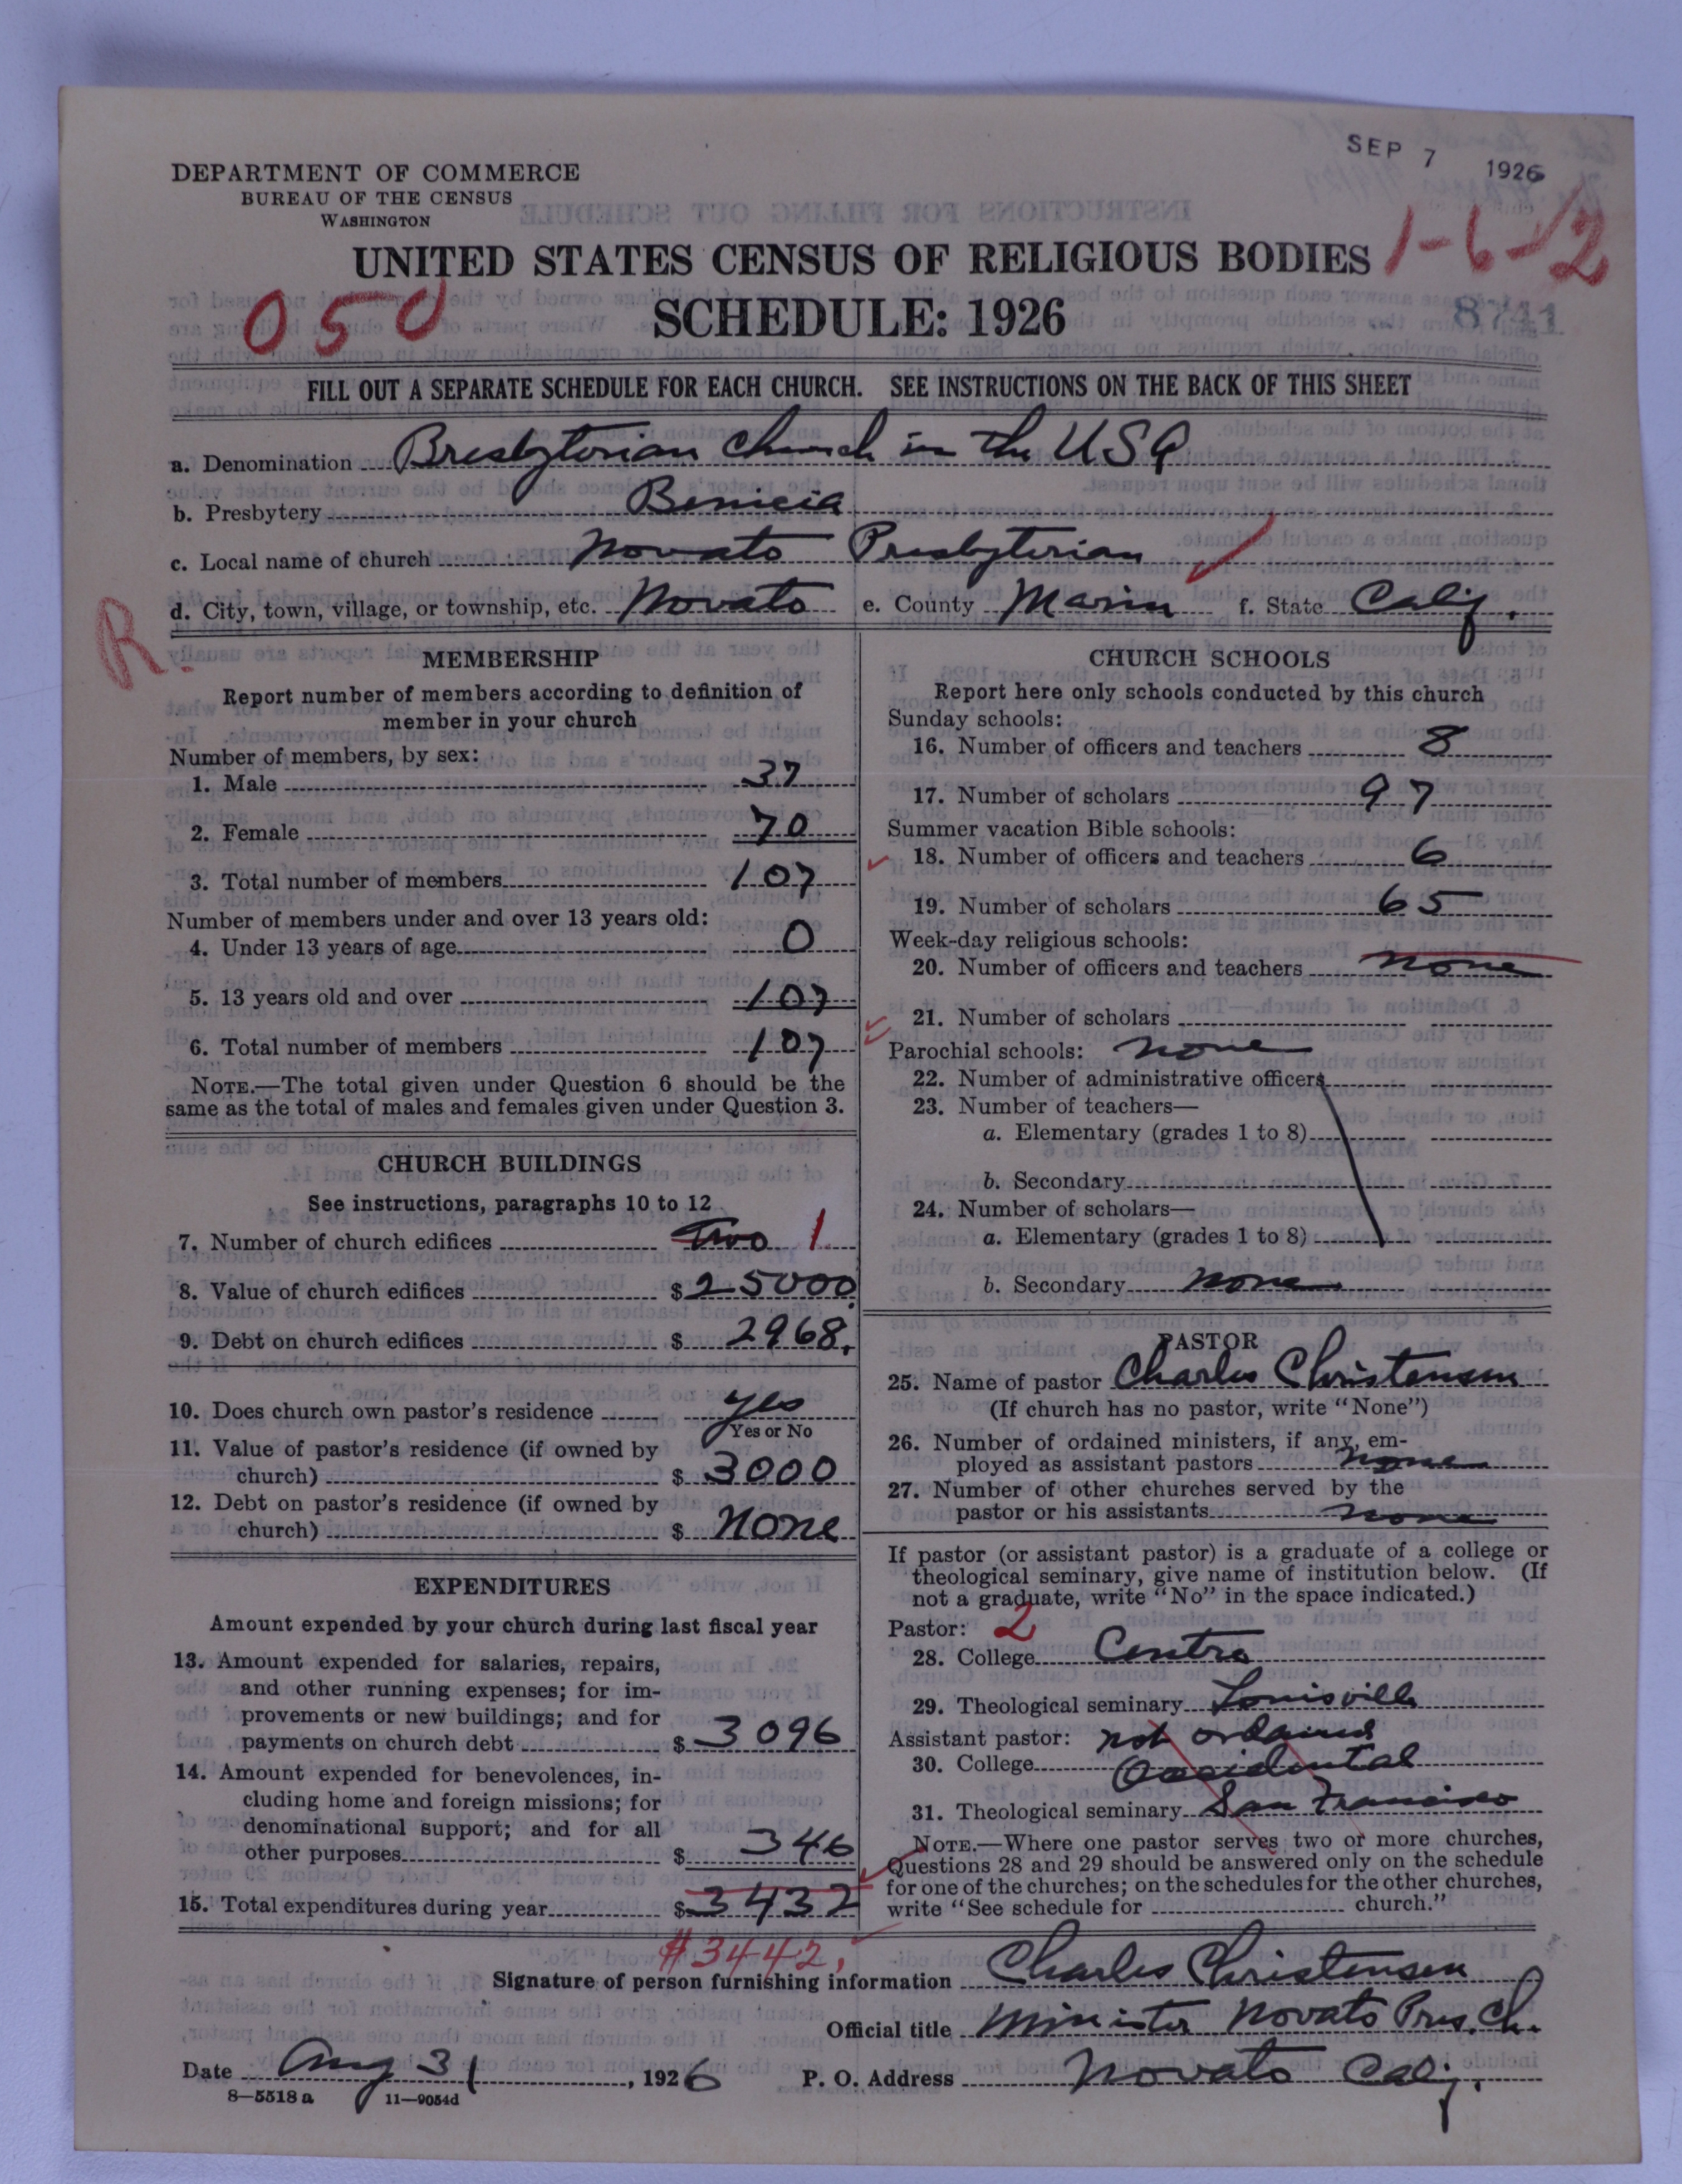 SEP 7 1926
DEPARTMENT OF COMMERCE
BUREAU OF THE CENSUS
WASHINGTON
UNITED STATES CENSUS OF RELIGIOUS BODIES 1-6-12
050 SCHEDULE: 1926 8741
FILL OUT A SEPARATE SCHEDULE FOR EACH CHURCH. SEE INSTRUCTIONS ON THE BACK OF THIS SHEET
a. Denomination Presbyterian Church in the USA
b. Presbytery Benicia
c. Local name of church Novato Presbyterian
d. City, town, village, or township, etc. Novato e. County Marin f. State Calif.
R.
MEMBERSHIP
Report number of members according to definition of
member in your church
Number of members, by sex:
1. Male 37
2. Female 70
3. Total number of members 107
Number of members under and over 13 years old:
4. Under 13 years of age 0
5. 13 years old and over 107
6. Total number of members 107
NOTE.—The total given under Question 6 should be the
same as the total of males and females given under Question 3.
CHURCH BUILDINGS
See instructions, paragraphs 10 to 12
7. Number of church edifices Two 1
8. Value of church edifices $ 25000
9. Debt on church edifices $ 2968.
10. Does church own pastor's residence yes
Yes or No
11. Value of pastor's residence (if owned by
church) $ 3000
12. Debt on pastor's residence (if owned by
church) $ None
EXPENDITURES
Amount expended by your church during last fiscal year
13. Amount expended for salaries, repairs,
and other running expenses; for im-
provements or new buildings; and for
payments on church debt $ 3096
14. Amount expended for benevolences, in-
cluding home and foreign missions; for
denominational support; and for all
other purposes $ 346
15. Total expenditures during year $ 3432
#3442.
CHURCH SCHOOLS
Report here only schools conducted by this church
Sunday schools:
16. Number of officers and teachers 8
17. Number of scholars 97
Summer vacation Bible schools:
18. Number of officers and teachers 6
19. Number of scholars 65
Week-day religious schools:
20. Number of officers and teachers none
21. Number of scholars
Parochial schools: none
22. Number of administrative officers
23. Number of teachers—
a. Elementary (grades 1 to 8)
b. Secondary
24. Number of scholars—
a. Elementary (grades 1 to 8)
b. Secondary none
PASTOR
25. Name of pastor Charles Christensen
(If church has no pastor, write "None")
26. Number of ordained ministers, if any, em-
ployed as assistant pastors none
27. Number of other churches served by the
pastor or his assistants none
If pastor (or assistant pastor) is a graduate of a college or
theological seminary, give name of institution below. (If
not a graduate, write "No" in the space indicated.)
Pastor: 2
28. College Centre
29. Theological seminary Louisville
Assistant pastor: not ordained
30. College Occidental
31. Theological seminary San Francisco
NOTE.—Where one pastor serves two or more churches,
Questions 28 and 29 should be answered only on the schedule
for one of the churches; on the schedules for the other churches,
write "See schedule for church."
Signature of person furnishing information Charles Christensen
Official title Minister Novato Pres. Ch.
Date Aug 31, 1926 P. O. Address Novato Calif.
8-5518 a 11-9054d